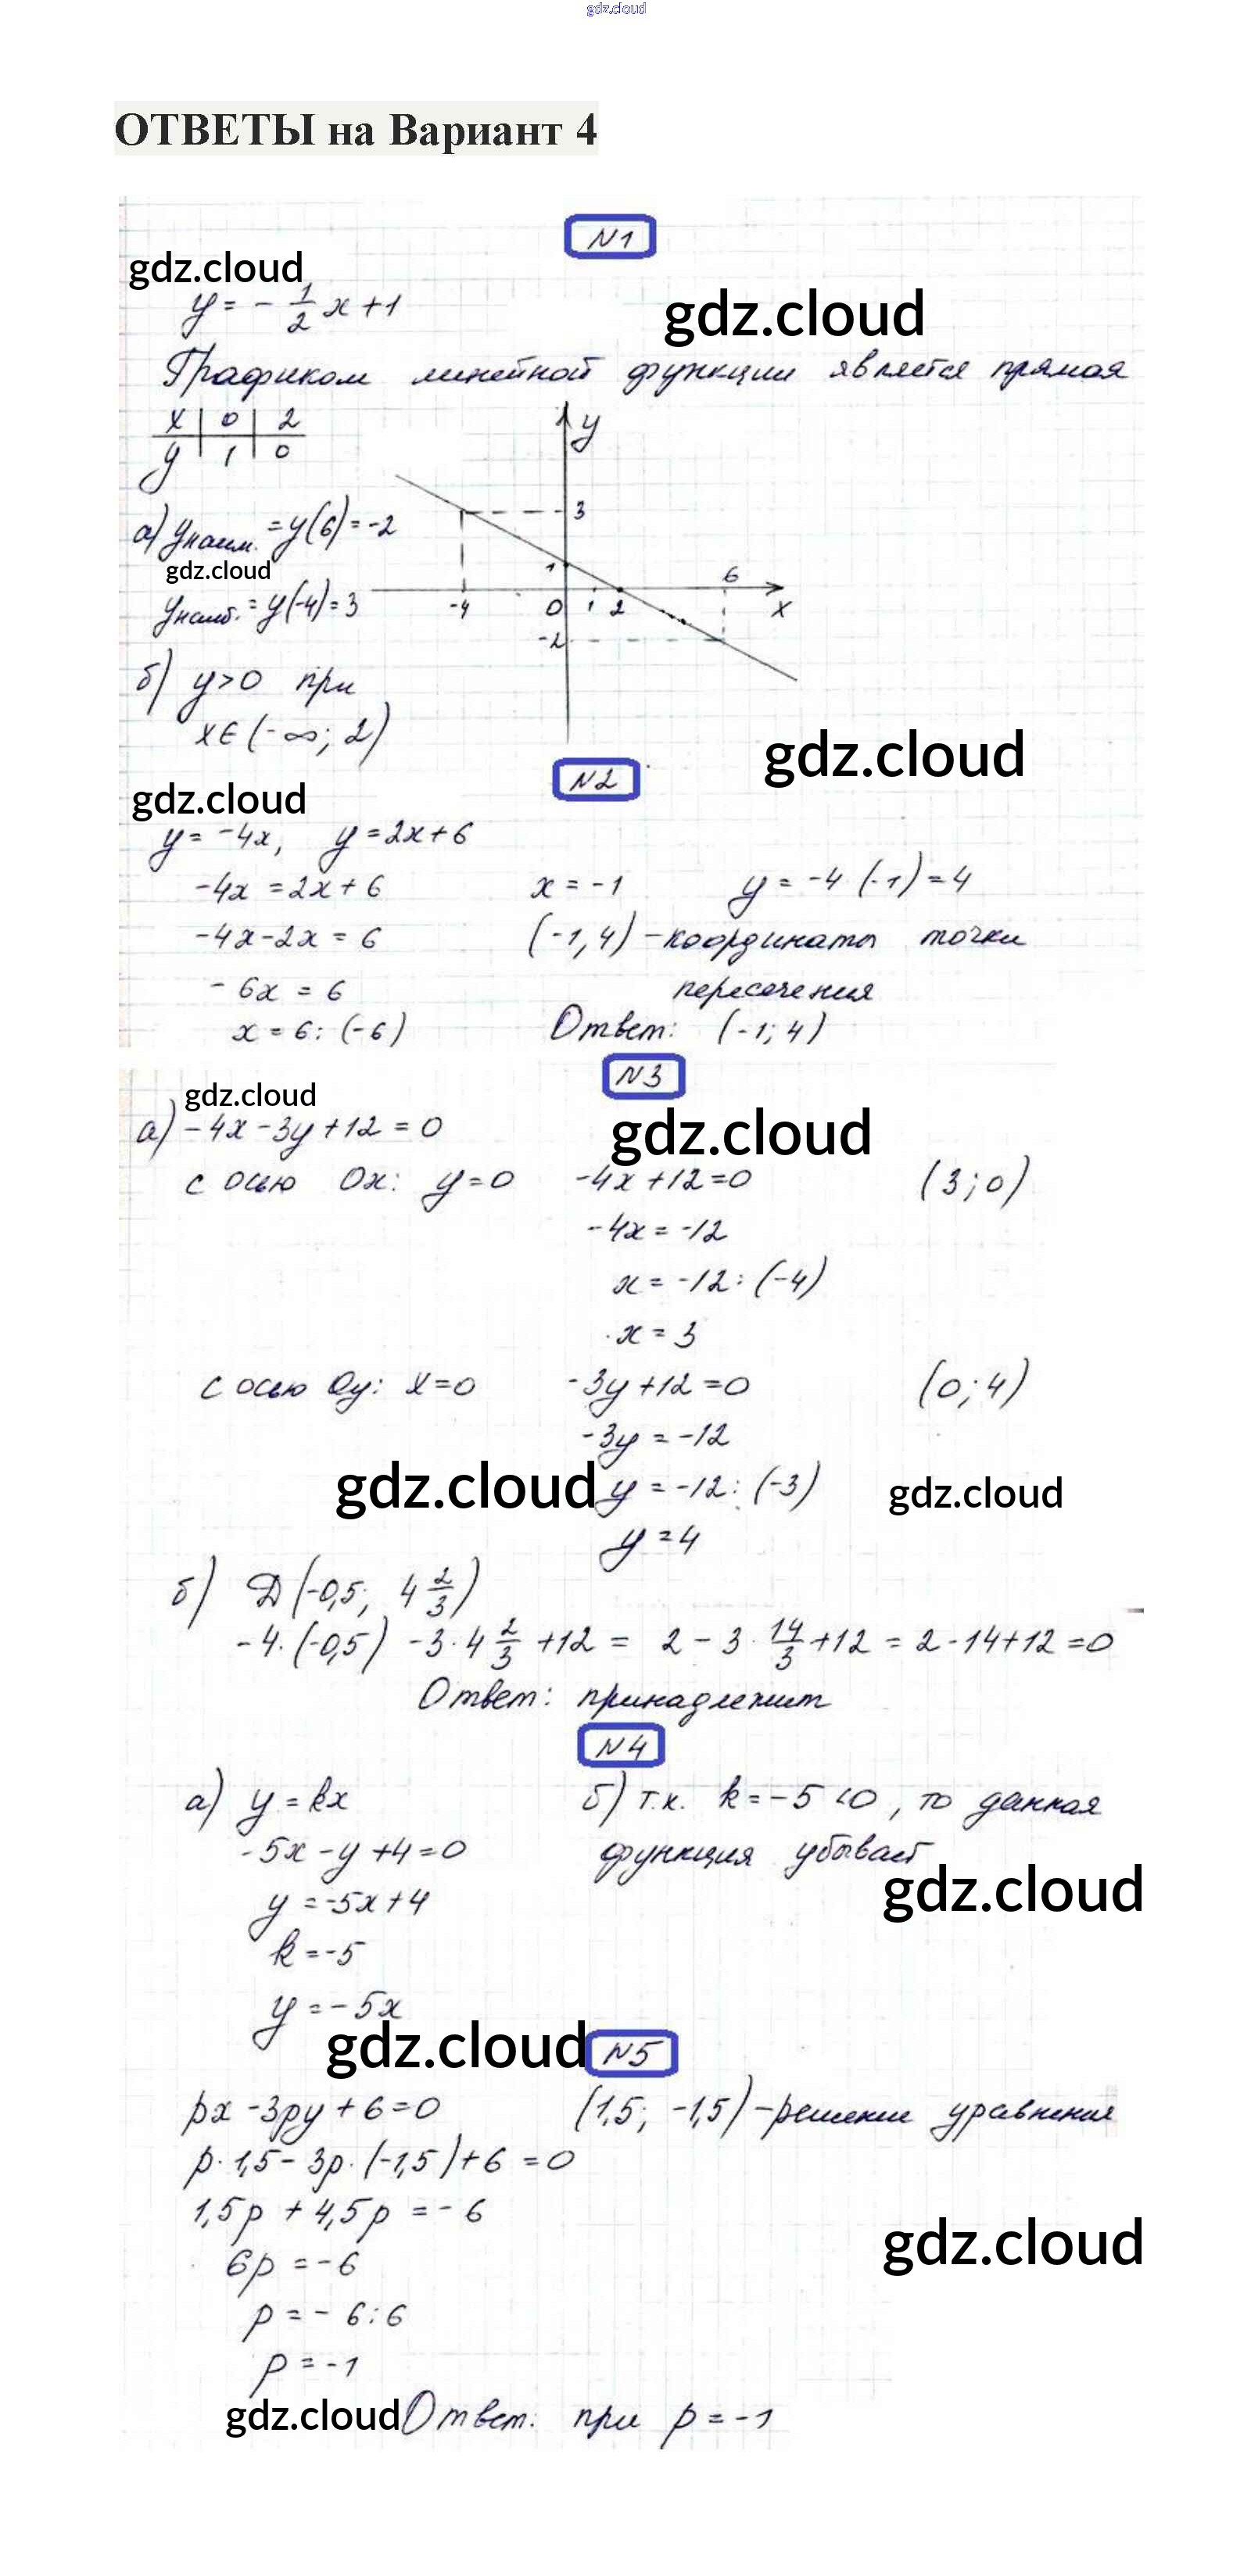 gdz.cloud
ОТВЕТЫ на Вариант 4
N1
gdz.cloud
y = - 1/2 x + 1
gdz.cloud
Графиком линейной функции является прямая
x | 0 | 2
y | 1 | 0
y
3
1
-4 0 1 2 6 x
-2
а) yнаим. = y(6) = -2
gdz.cloud
yнаиб. = y(-4) = 3
б) y > 0 при
x ∈ (-∞; 2)
gdz.cloud
N2
gdz.cloud
y = -4x, y = 2x + 6
-4x = 2x + 6
-4x - 2x = 6
- 6x = 6
x = 6 : (-6)
x = -1 y = -4·(-1) = 4
(-1, 4) - координаты точки
пересечения
Ответ: (-1; 4)
N3
gdz.cloud
а) -4x - 3y + 12 = 0
gdz.cloud
с осью Ox: y = 0 -4x + 12 = 0 (3; 0)
-4x = -12
x = -12 : (-4)
x = 3
с осью Oy: x = 0 -3y + 12 = 0 (0; 4)
-3y = -12
gdz.cloud y = -12 : (-3) gdz.cloud
y = 4
б) Д (-0,5; 4 2/3)
-4·(-0,5) - 3·4 2/3 + 12 = 2 - 3·14/3 + 12 = 2 - 14 + 12 = 0
Ответ: принадлежит
N4
а) y = kx
-5x - y + 4 = 0
y = -5x + 4
k = -5
y = -5x
б) т.к. k = -5 < 0, то данная
функция убывает
gdz.cloud
gdz.cloud
N5
px - 3py + 6 = 0 (1,5; -1,5) - решение уравнения
p·1,5 - 3p·(-1,5) + 6 = 0
1,5p + 4,5p = -6
gdz.cloud
6p = -6
p = - 6 : 6
p = -1
gdz.cloud Ответ: при p = -1